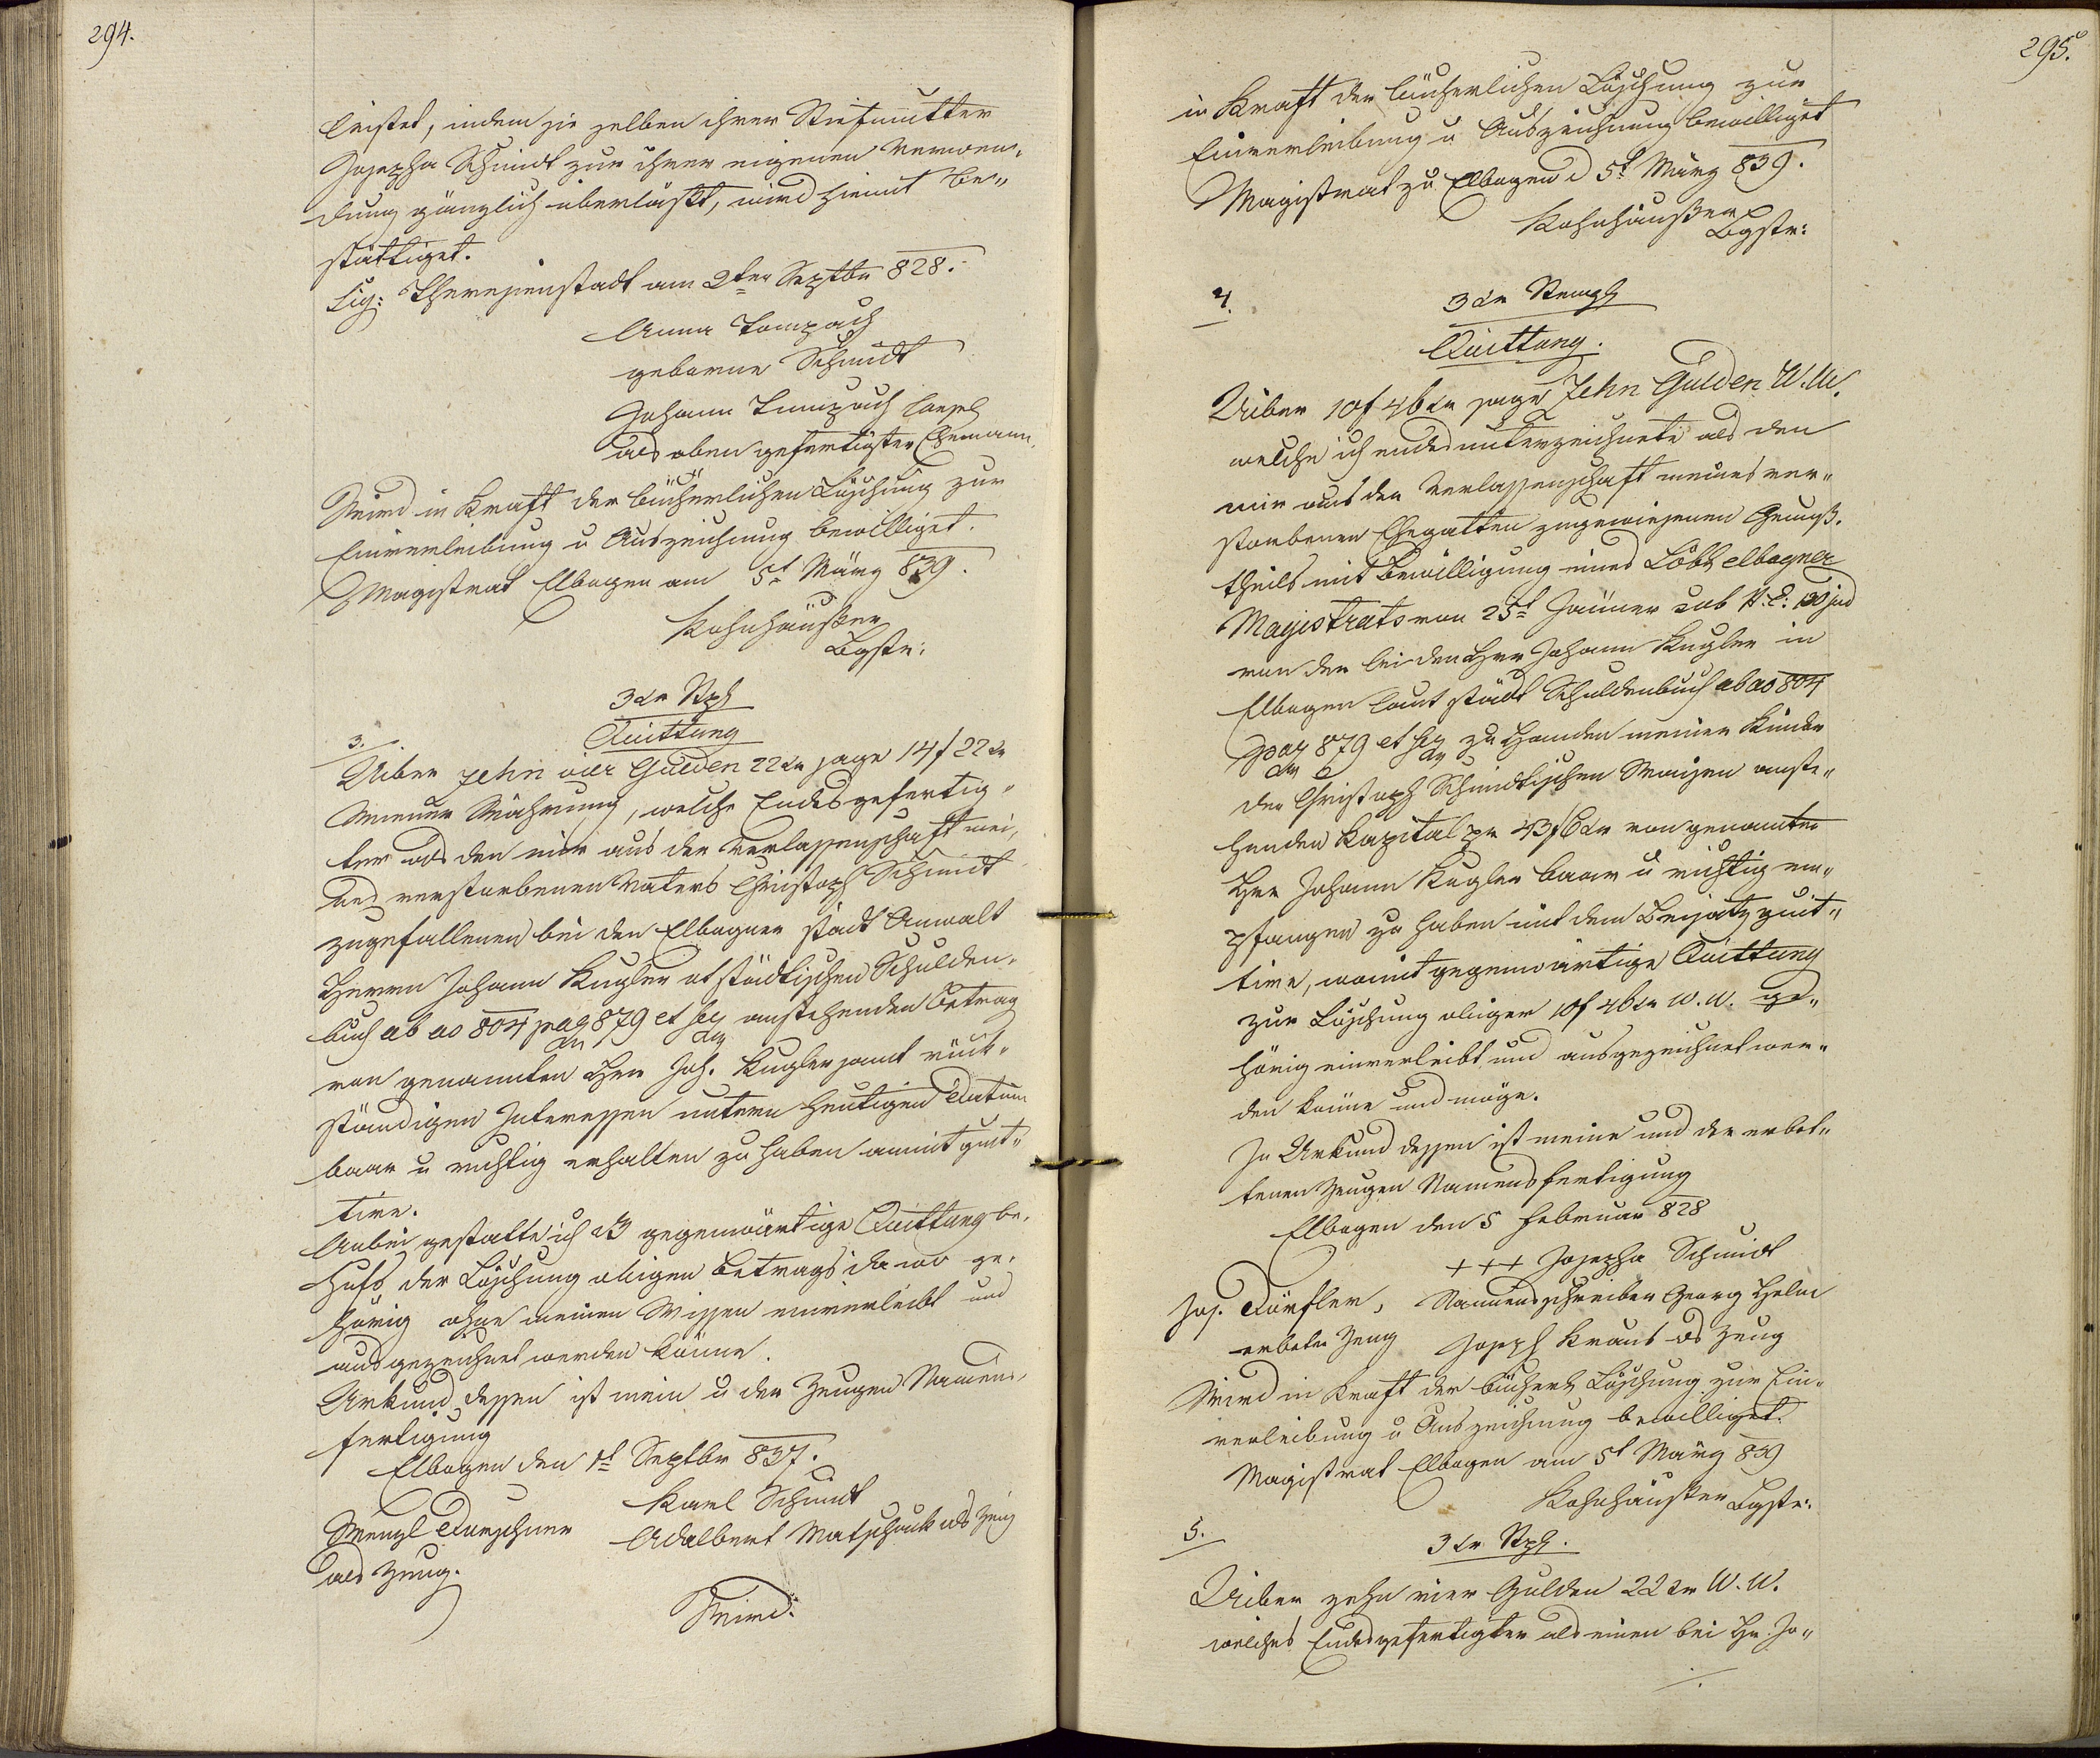 294.
leistet, indem sie selben ihrer Stiefmutter
Josepha Schmidt zur ihrer eigenen Verwen-
dung gänzlich überläßt, wird hiemit be-
stättiget.
Sig: Theresienstadt am 2ten Septbr 828.
Anna Tompach
geborne Schmidt
Johann Tompach
als oben gefertigter Ehemann.
Wird in Kraft der bücherlichen Löschung zur
Einverleibung u Auszeichnung bewilliget.
Magistrat Elbogen am 5t März 839.
Kohnhäußer
Bgstr:
3 xr Stpl
3. Quittung
Uiber zehn vier Gulden 22 xr sage 14 f 22 xr
Wiener Währung, welche Endesgefertig-
ter als den mir aus der Verlassenschaft mei-
nes verstorbenen Vaters Christoph Schmidt
zugefallenen bei den Elbogner Stadt Anwalt
Herrn Johann Kugler at städtischen Schulden-
buch ab ao 804 pag 879 et seq anstehenden Betrag
von genannten Hrn Joh. Kugler samt rück-
ständigen Interessen untern heutigen Datum
baar u richtig erhalten zu haben anmit quit-
tire.
Anbei gestatte ich daß gegenwärtige Quittung be-
hufs der Löschung obigen Betrags da wo ge-
hörig ohne meinen Wissen einverleibt und
ausgezeichnet werden könne.
Urkund dessen ist mein u der Zeugen Namens-
fertigung
Elbogen den 1t Septbr 837.
Karl Schmidt
Wenzl Durschner Adalbert Matschack als Zeug
als Zeug.
Wird
295.
in Kraft der bücherlichen Löschung zur
Einverleibung u Auszeichnung bewilliget
Magistrat zu Elbogen d 5t März 839.
Kohnhäußer
Bgstr:
4. 3 xr Stempl
Quittung.
Uiber 10 f 46 xr sage Zehn Gulden W. W.
welche ich endesunterzeichnete als den
mir aus der Verlassenschaft meines ver-
storbenen Ehegatten zugewiesenen Genuß-
theils mit Bewilligung eines Löbl elbogner
Magistrats von 25t Jänner sub N. E: 130 jud
von der bei den Hrn Johann Kugler in
Elbogen laut städt Schuldenbuch ab ao 804
pag 879 et seq zu Handen meiner Kinder
der Christoph Schmidtischen Waisen anste-
henden Kapital pr 43 f 6 xr von genannten
Hrn Johann Kugler baar u richtig em-
pfangen zu haben mit dem Beisatz quit-
tire, womit gegenwärtige Quittung
zur Löschung obiger 10 f 46 xr W. W. ge-
hörig einverleibt und ausgezeichnet wer-
den könne und möge.
In Urkund dessen ist meine und der erbet-
tenen Zeugen Namensfertigung
Elbogen den 5 Februar 828
+++ Josepha Schmidt
Jos. Dörfler, Namensschreiber Georg Helm
erbetn Zeug Joseph Kraus als Zeug
Wird in Kraft der bücherl Löschung zur Ein-
verleibung u Auszeichnung bewilliget.
Magistrat Elbogen am 5t März 839
Kohnhäußer Bgstr:
5. 3 xr Stpl.
Uiber zehn vier Gulden 22 xr W. W.
welches Endesgefertigter als einen bei Hr. Jo-